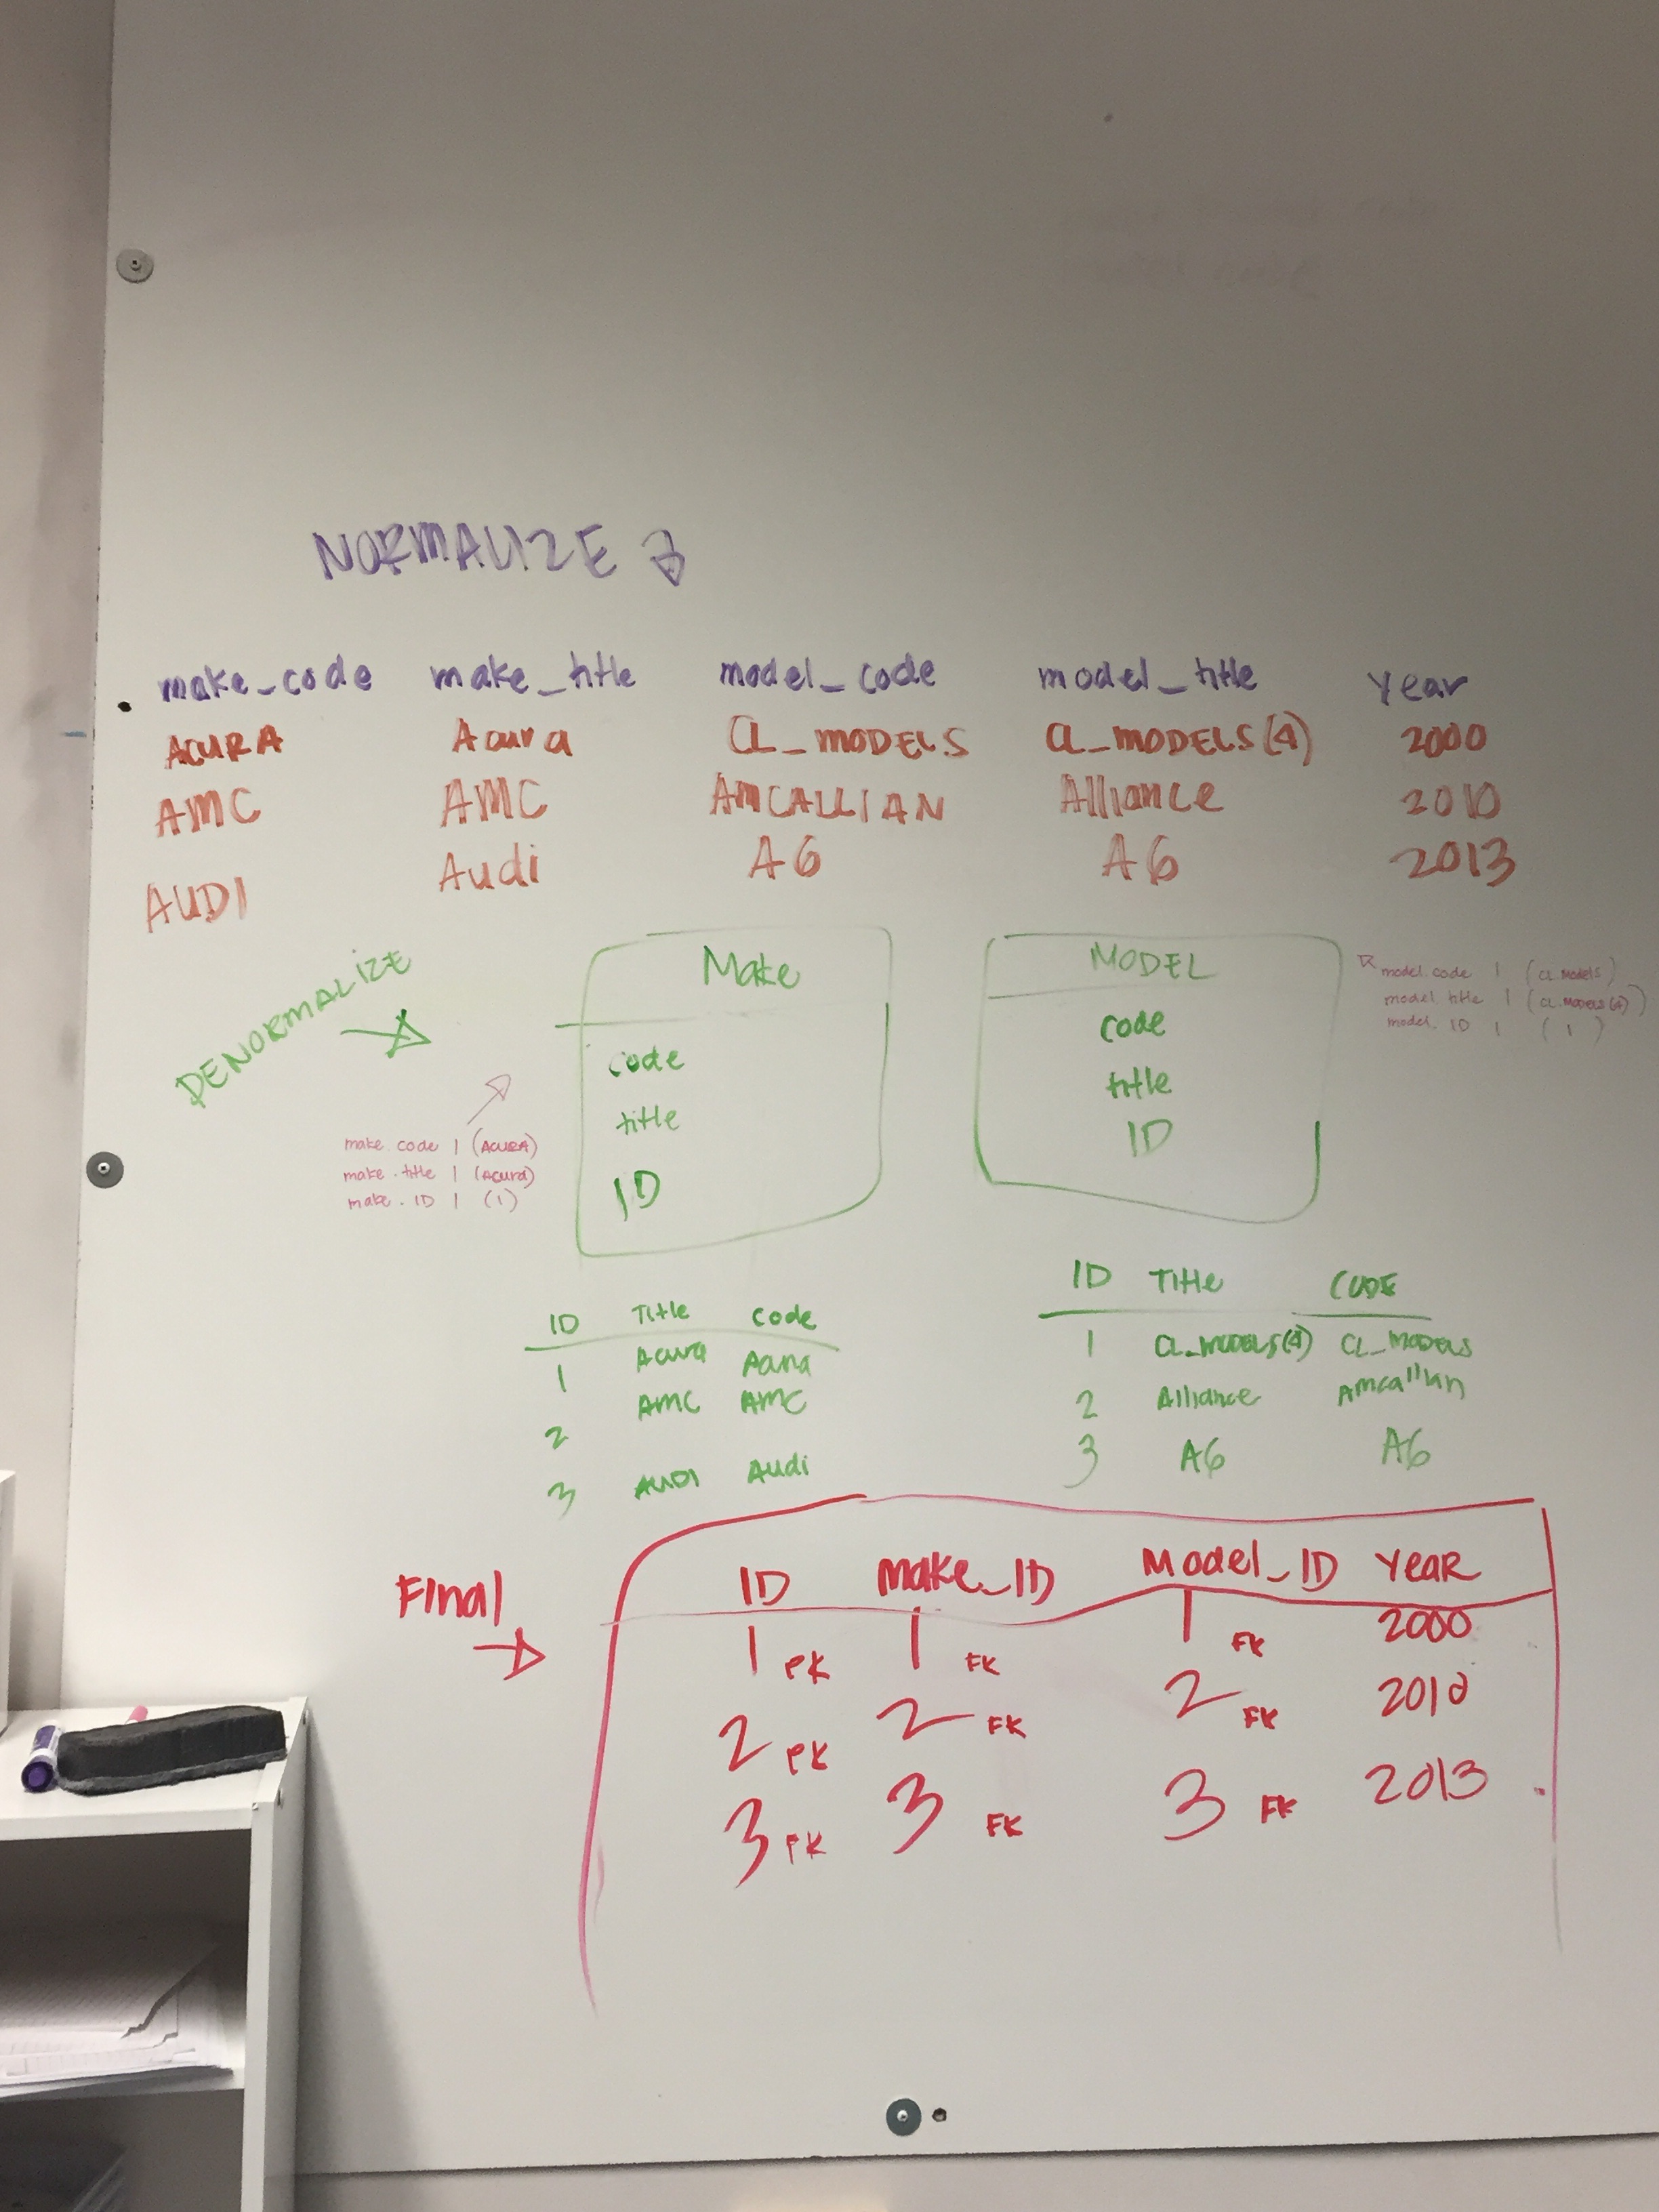 NORMALIZE
make_code make_title model_code model_title year
ACURA Acura CL_MODELS CL_MODELS(4) 2000
AMC AMC AMCALLIAN Alliance 2010
AUDI Audi A6 A6 2013
DENORMALIZE
Make
code
title
ID
MODEL
code
title
ID
model.code | (CL_Models)
model.title | (CL_Models(4))
model.ID | (1)
make.code | (ACURA)
make.title | (Acura)
make.ID | (1)
ID Title Code
1 Acura Acura
2 AMC AMC
3 AUDI Audi
ID Title CODE
1 CL_MODELS(4) CL_MODELS
2 Alliance Amcallian
3 A6 A6
Final
ID Make_ID Model_ID Year
1 PK 1 FK 1 FK 2000
2 PK 2 FK 2 FK 2010
3 PK 3 FK 3 FK 2013